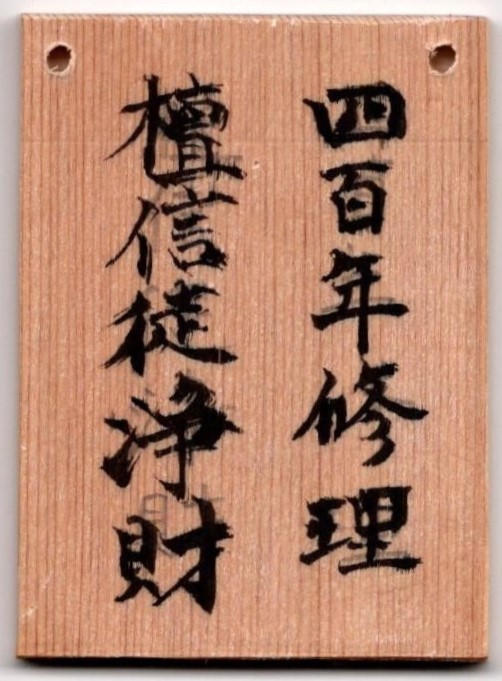 四百年修理
檀信徒浄財